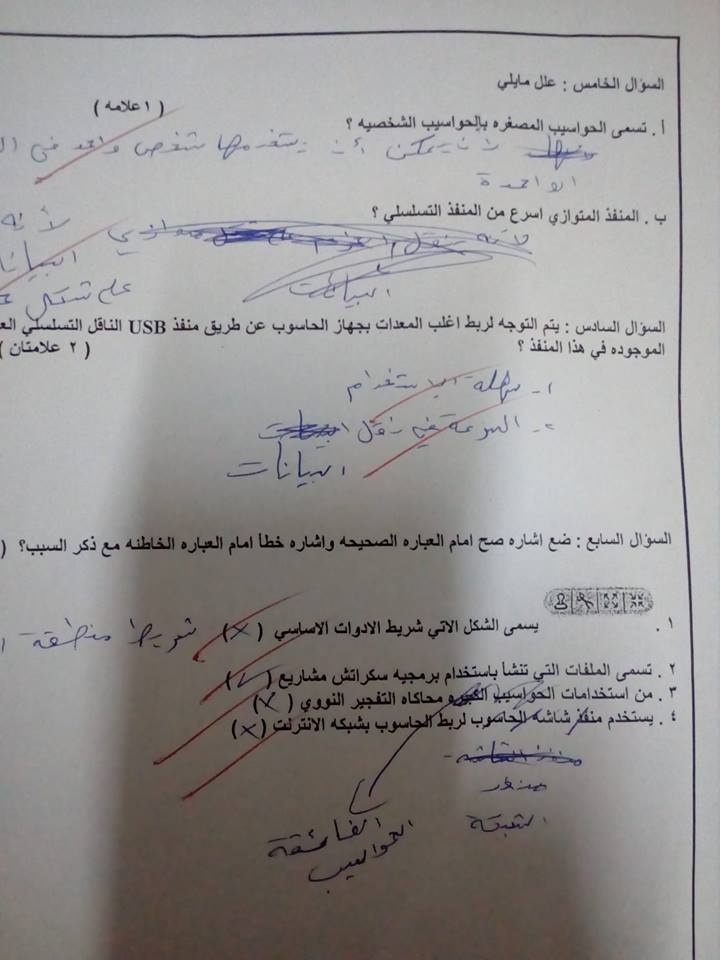 السؤال الخامس : علل مايلي
( ١ علامه )
أ . تسمى الحواسيب المصغره بالحواسيب الشخصيه ؟
لأنه يمكن أن يستخدمها شخص واحد في
الواحدة
ب . المنفذ المتوازي اسرع من المنفذ التسلسلي ؟
لأنه
البيانات
على شكل
السؤال السادس : يتم التوجه لربط اغلب المعدات بجهاز الحاسوب عن طريق منفذ USB الناقل التسلسلي
الموجوده في هذا المنفذ ؟ ( ٢ علامتان )
١- سهلة الاستخدام
٢- السرعة في نقل
البيانات
السؤال السابع : ضع اشاره صح امام العباره الصحيحه واشاره خطأ امام العباره الخاطئه مع ذكر السبب؟ (
١ . يسمى الشكل الاتي شريط الادوات الاساسي ( X ) شريط منطقة
٢ . تسمى الملفات التي تنشأ باستخدام برمجيه سكراتش مشاريع ( ✓ )
٣ . من استخدامات الحواسيب الكبيره محاكاه التفجير النووي ( X )
٤ . يستخدم منفذ شاشه الحاسوب لربط الحاسوب بشبكه الانترنت ( X )
الشبكة
الفائقة
الحواسيب